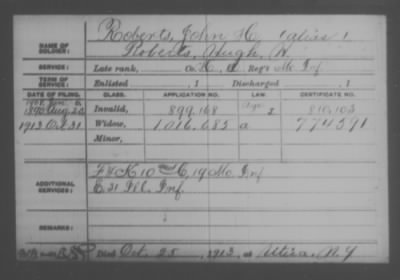 Roberts, John H. (alias)
NAME OF SOLDIER: Roberts, Hugh H.
SERVICE: Late rank, Co. H, Reg't Mo. Inf.
TERM OF SERVICE: Enlisted , 1 Discharged , 1
DATE OF FILING. CLASS. APPLICATION NO. LAW. CERTIFICATE NO.
1890 Aug 22 Invalid, 899,168 810,103
1913 Oct 31 Widow, 1016,683 a 774591
Minor,
ADDITIONAL SERVICES: F & K 10 & C, 19 Mo. Inf
E. 31 Ill. Inf.
REMARKS:
Died Oct. 25, 1913, at Utica, N.Y.